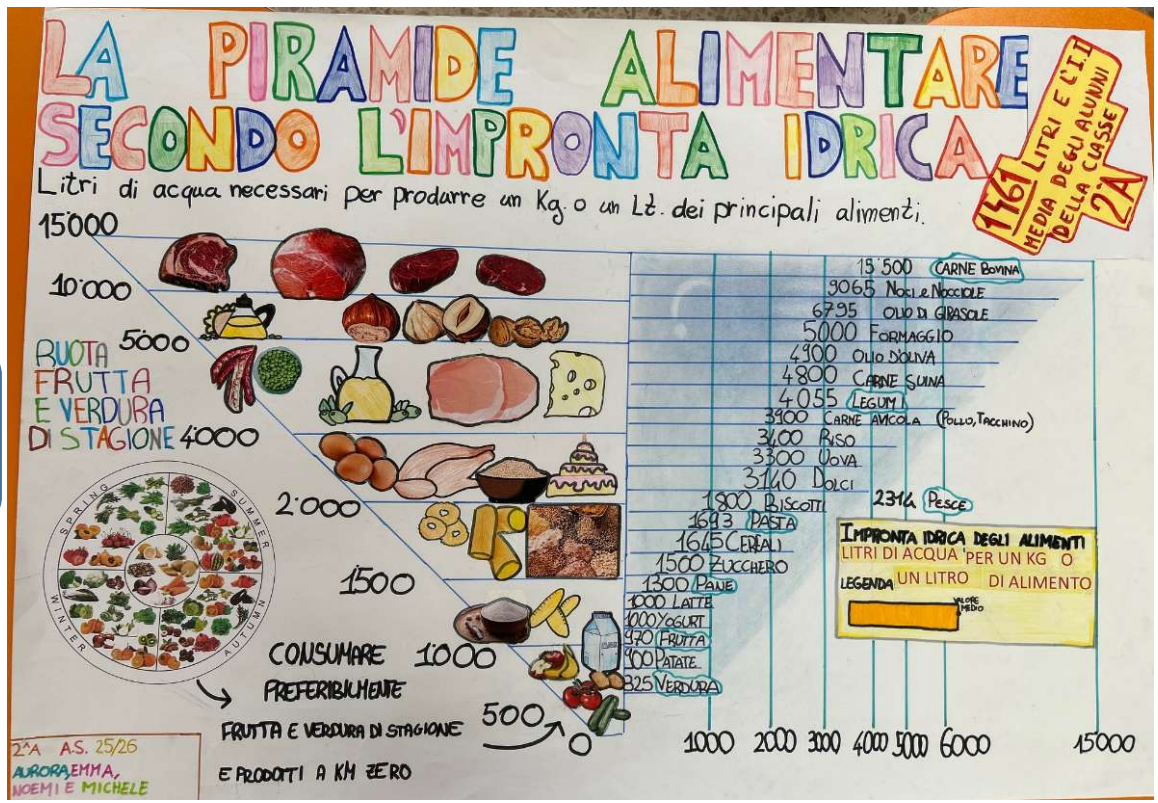 LA PIRAMIDE ALIMENTARE
SECONDO L'IMPRONTA IDRICA
1461 LITRI E L'I.I
MEDIA DEGLI ALUNNI
DELLA CLASSE
2ªA
Litri di acqua necessari per produrre un Kg. o un Lt. dei principali alimenti.
15'000
10'000
5'000
4'000
2'000
1500
1000
500
0
RUOTA
FRUTTA
E VERDURA
DI STAGIONE
SPRING
SUMMER
AUTUMN
WINTER
CONSUMARE
PREFERIBILMENTE
FRUTTA E VERDURA DI STAGIONE
E PRODOTTI A KM ZERO
2^A A.S. 25/26
AURORA, EMMA,
NOEMI E MICHELE
15'500 CARNE BOVINA
9065 NOCI e NOCCIOLE
6795 OLIO DI GIRASOLE
5000 FORMAGGIO
4900 OLIO D'OLIVA
4800 CARNE SUINA
4055 LEGUMI
3900 CARNE AVICOLA (POLLO, TACCHINO)
3400 RISO
3300 UOVA
3140 DOLCI
2314 PESCE
1800 BISCOTTI
1693 PASTA
1645 CEREALI
1500 ZUCCHERO
1300 PANE
1000 LATTE
1000 YOGURT
970 FRUTTA
900 PATATE
325 VERDURA
IMPRONTA IDRICA DEGLI ALIMENTI
LITRI DI ACQUA PER UN KG O
UN LITRO DI ALIMENTO
LEGENDA
VALORE
MEDIO
1000 2000 3000 4000 5000 6000 15000